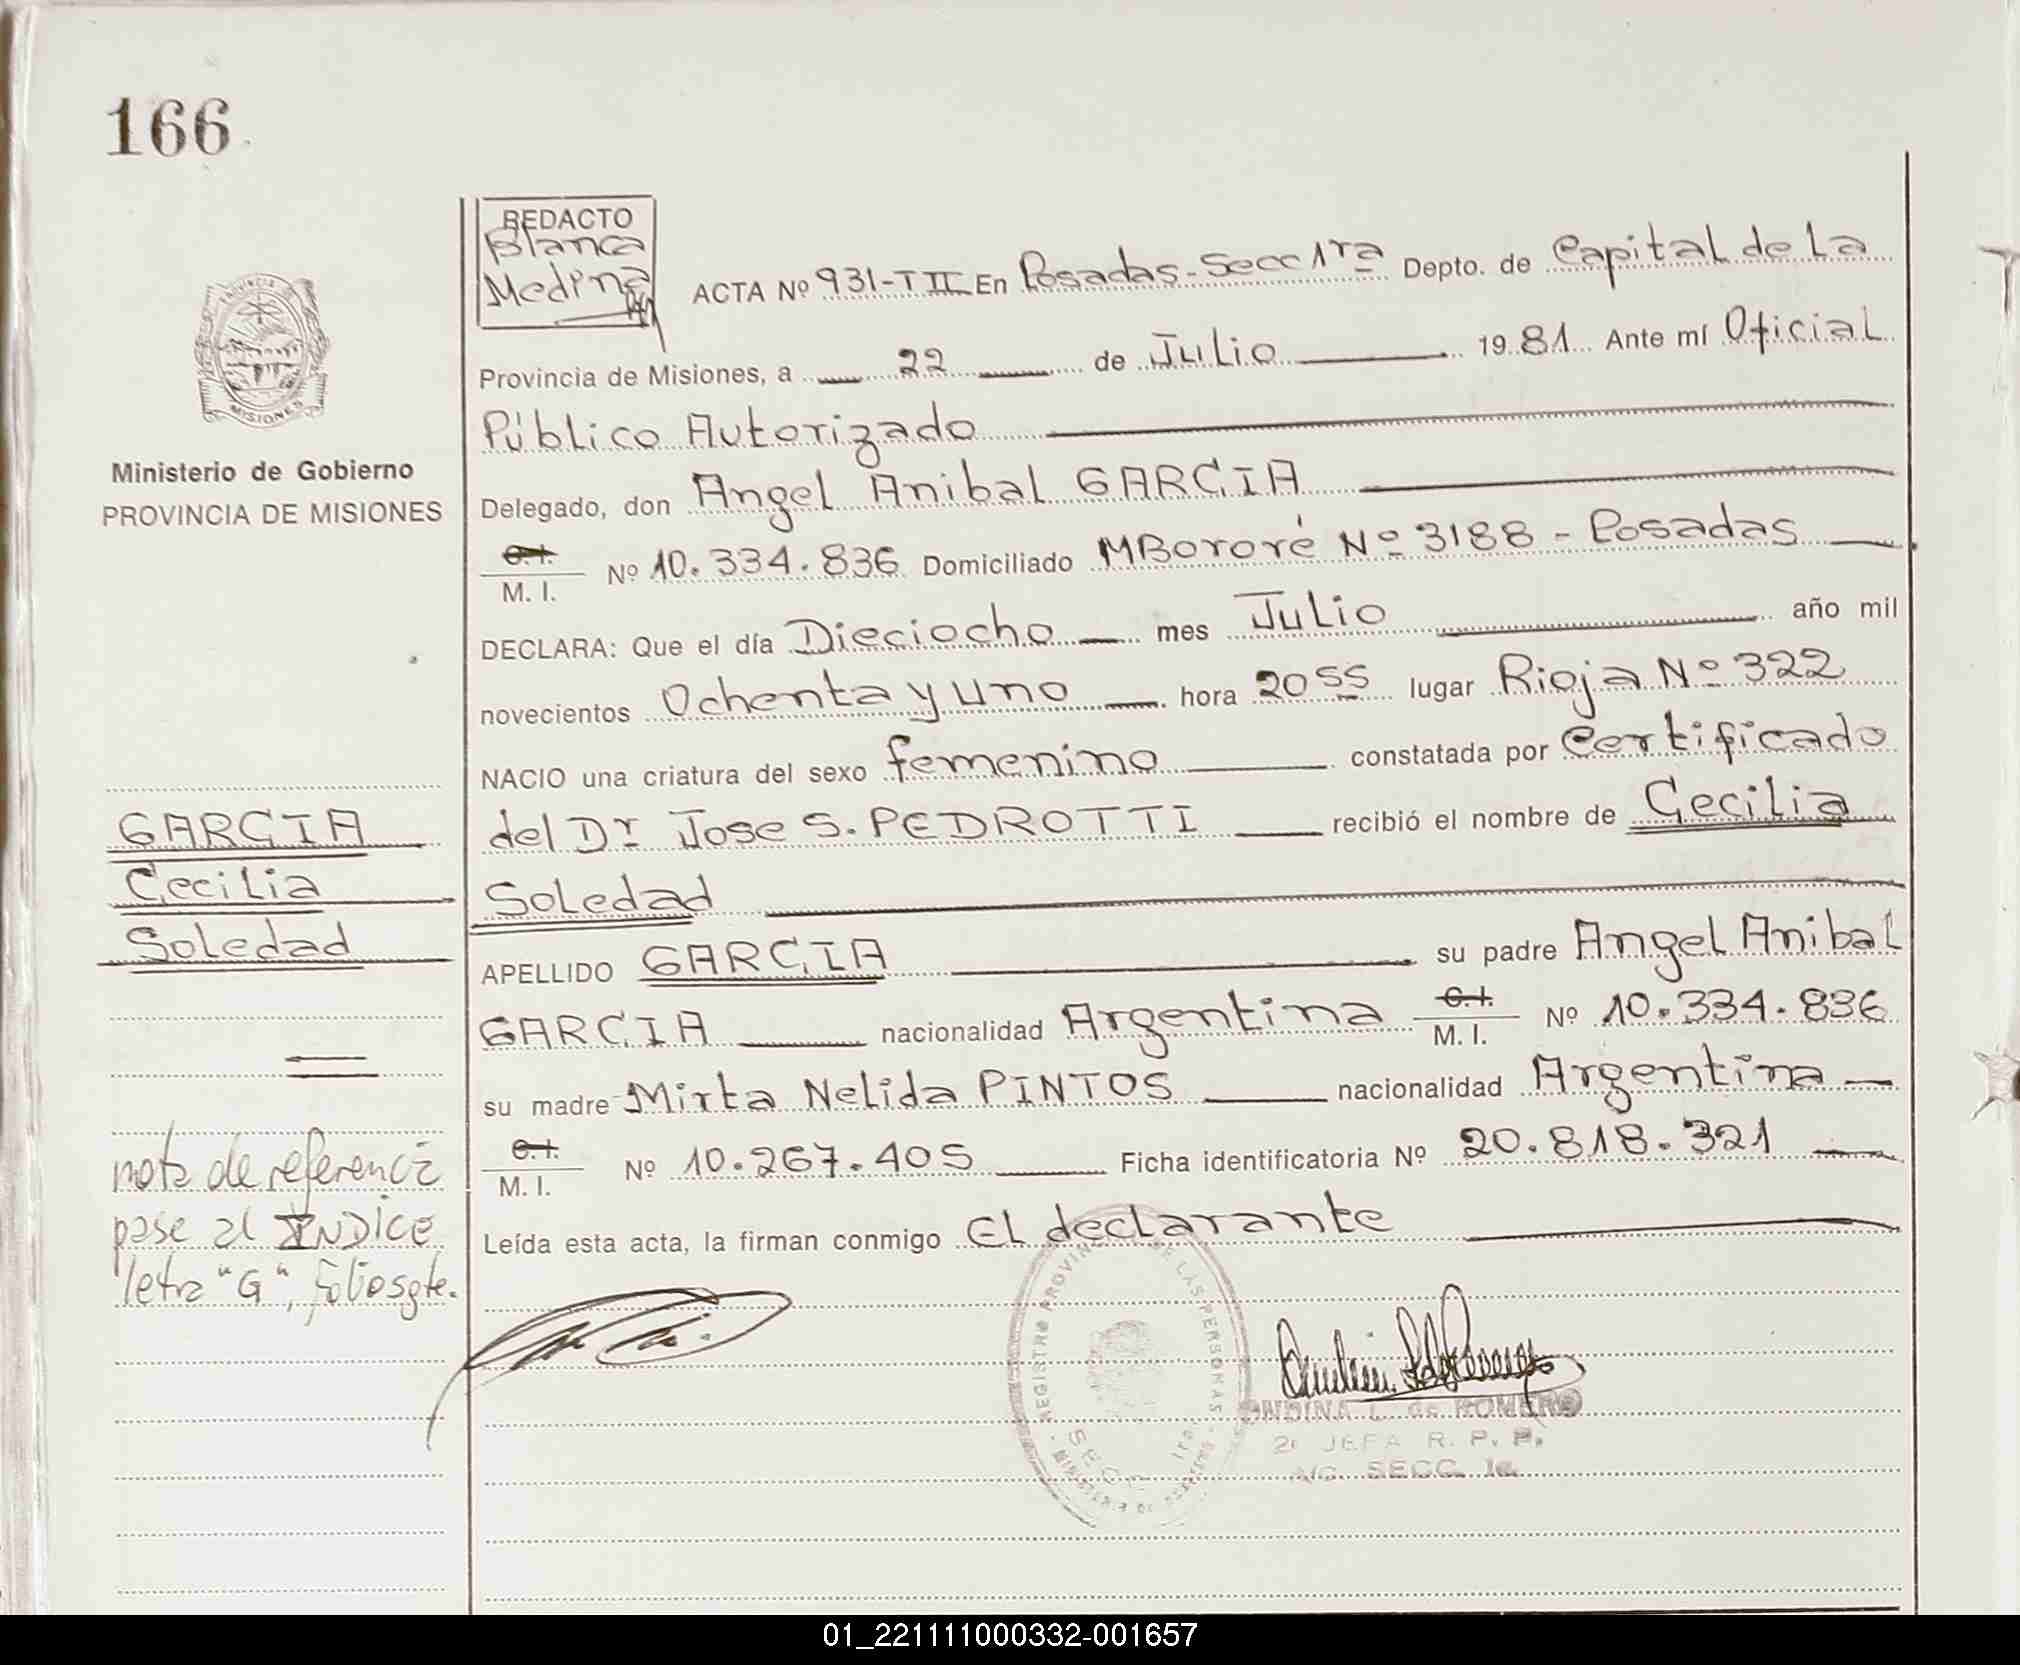 166
REDACTO
Blanca
Medina
ACTA Nº 931-T II En Posadas-Secc 1ra Depto. de Capital de La
Provincia de Misiones, a 22 de Julio 1981 Ante mí Oficial
Público Autorizado
Delegado, don Angel Anibal GARCIA
C.I.
M. I. Nº 10.334.836 Domiciliado MBororé Nº 3188 - Posadas
DECLARA: Que el día Dieciocho mes Julio año mil
novecientos Ochenta y uno hora 20 55 lugar Rioja Nº 322
NACIO una criatura del sexo femenino constatada por Certificado
del Dr Jose S. PEDROTTI recibió el nombre de Cecilia
Soledad
APELLIDO GARCIA su padre Angel Anibal
GARCIA nacionalidad Argentina C.I. M. I. Nº 10.334.836
su madre Mirta Nelida PINTOS nacionalidad Argentina
C.I.
M. I. Nº 10.267.405 Ficha identificatoria Nº 20.818.321
Leída esta acta, la firman conmigo El declarante
PROVINCIA
MISIONES
Ministerio de Gobierno
PROVINCIA DE MISIONES
GARCIA
Cecilia
Soledad
nota de referencia
pase al INDICE
letra "G", folio sgte.
REGISTRO PROVINCIAL DE LAS PERSONAS
SECC 1ra
ONDINA L. de ROMERO
JEFA R. P. P.
SECC. 1a
01_221111000332-001657